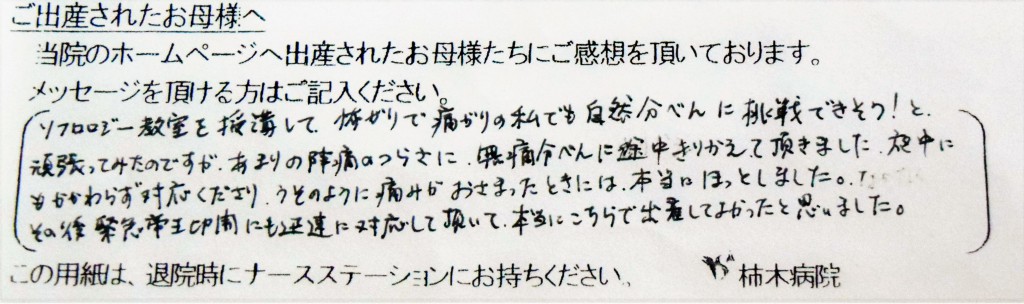 ご出産されたお母様へ
当院のホームページへ出産されたお母様たちにご感想を頂いております。
メッセージを頂ける方はご記入ください。
ソフロロジー教室を受講して、怖がりで痛がりの私でも自然分べんに挑戦できそう!と、
頑張ってみたのですが、あまりの陣痛のつらさに、無痛分べんに途中きりかえて頂きました。夜中に
もかかわらず対応くださり、うそのように痛みがおさまったときには、本当にほっとしました。
その後緊急帝王切開にも迅速に対応して頂いて、本当にこちらで出産してよかったと思いました。
この用紙は、退院時にナースステーションにお持ちください。
柿木病院